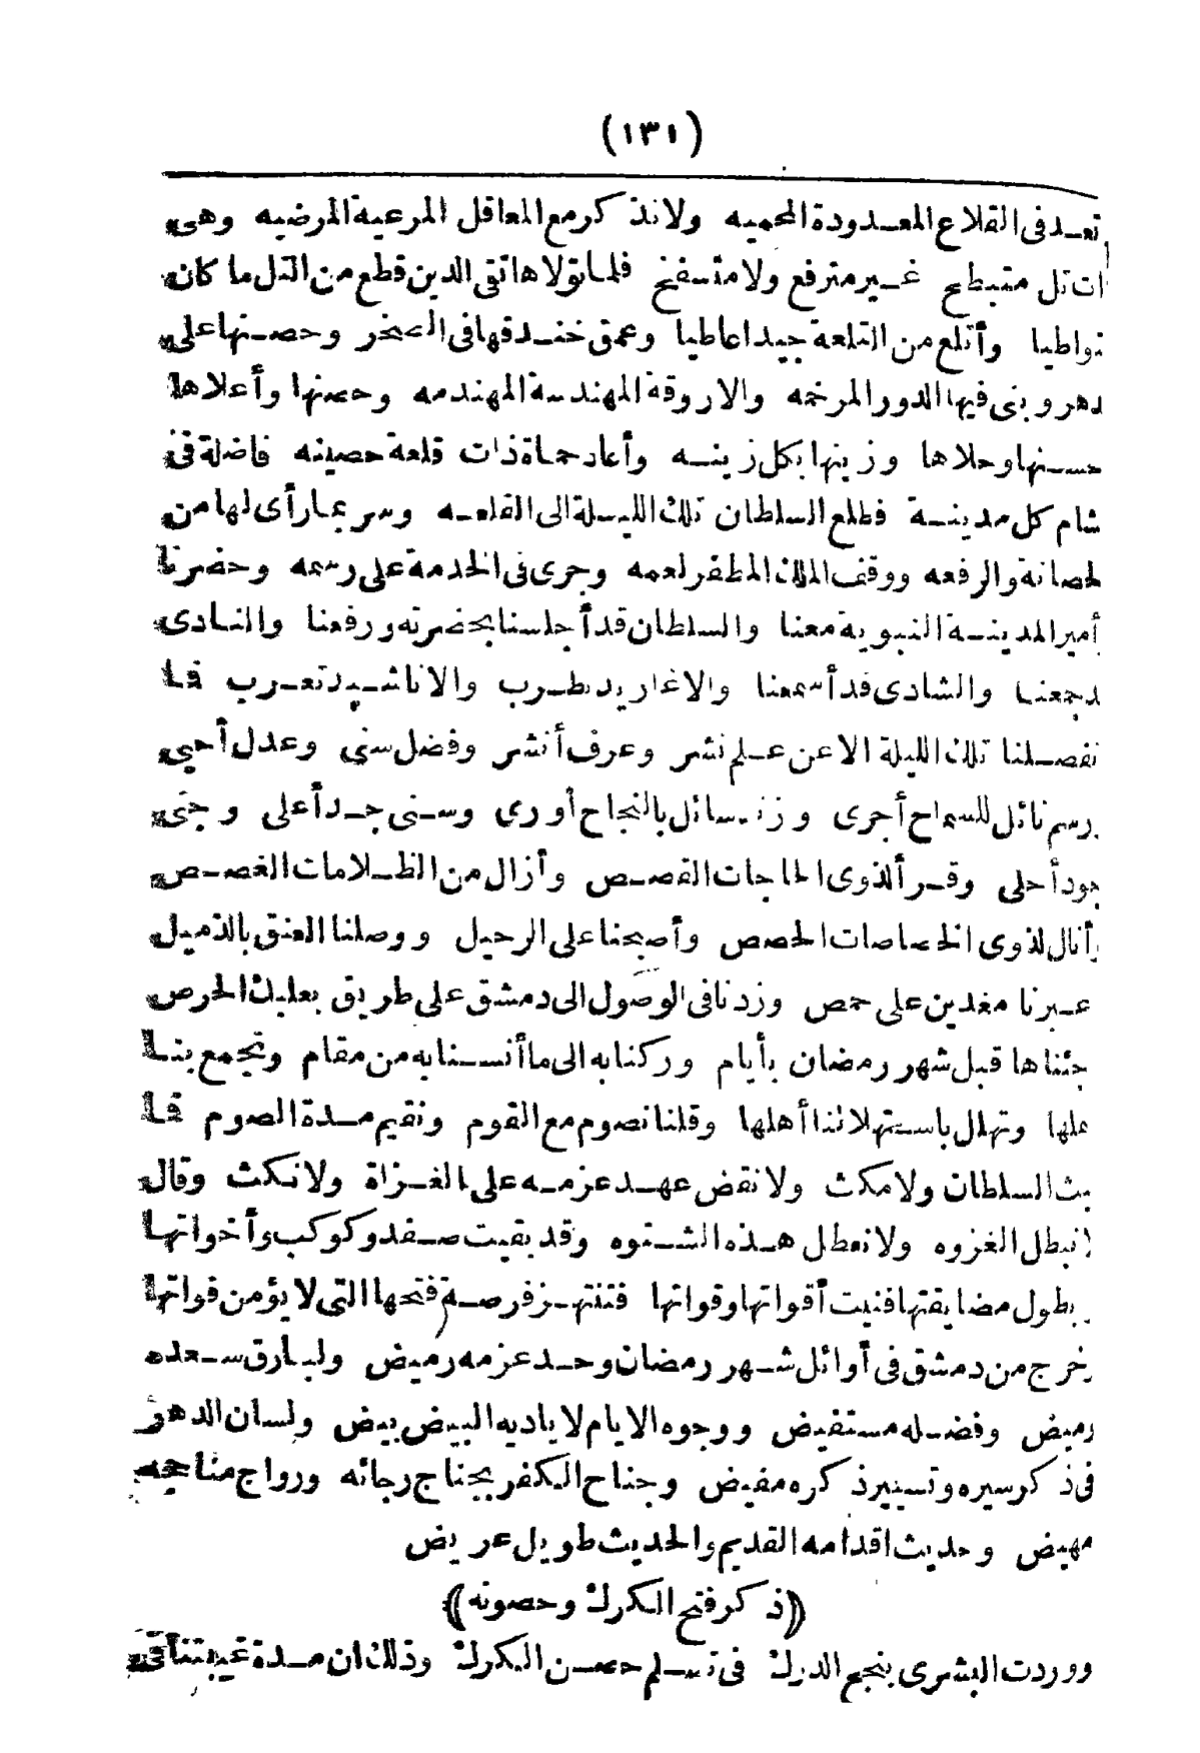 (١٣١)
تعد فى القلاع المعدودة المحميه ولا نذكر مع المعاقل المرعية المرضيه وهى
ات تل متبطح غير مترفع ولا متسفح فلما تولاها تقى الدين قطع من التل ما كان
تواطيا وأتلع من التلعة جيدا عاطيا وعمق خندقها فى الصخر وحصنها على
دهر وبنى فيها الدور المرخمه والاروقة المهندسة المهندمه وحصنها وأعلاها
حسنها وحلاها وزينها بكل زينه وأعاد حماة ذات قلعة حصينه فاضلة فى
شام كل مدينة فطلع السلطان تلك الليلة الى القلعه وسر بما رأى لها من
لحصانة والرفعه ووقف الملك المظفر لعمه وجرى فى الخدمة على رسمه وحضرنا
أمير المدينة النبوية معنا والسلطان قد أجلسنا بحضرته ورفعنا والنادى
دجمعنا والشادى قد أسمعنا والاغاريد تطرب والاناشيد تعرب فما
نفصلنا تلك الليلة الا عن علم نشر وعرف أنشر وفضل سنى وعدل أحيى
رسم نائل للسماح أجرى وزند سائل بالنجاح أورى وسنى جد أعلى وجنى
جود أحلى وقرأ لذوى الحاجات القصص وأزال من الظلامات الغصص
وأنال لذوى الخصاصات الحصص وأصبحنا على الرحيل ووصلنا العنق بالذميل
عبرنا مغدين على حمص وزدنا فى الوصول الى دمشق على طريق بعلبك الحرص
جئناها قبل شهر رمضان بأيام وركنا به الى ما أنسنا به من مقام وتجمع بنا
علها وتهلل باستهلالنا أهلها وقلنا نصوم مع القوم ونقيم مدة الصوم فما
بث السلطان ولا مكث ولا نقض عهد عزمه على الغزاة ولا نكث وقال
لا نبطل الغزوه ولا نعطل هذه الشتوه وقد بقيت صفد وكوكب وأخواتها
بطول مضايقتها فنيت أقواتها وقواتها فتنتهز فرصة فتحها التى لا يؤمن فواتها
خرج من دمشق فى أوائل شهر رمضان وحد عزمه رميض ولبارق سعده
رميض وفضله مستفيض ووجوه الايام لاياديه البيض بيض ولسان الدهر
فى ذكر سيره وتسيير ذكره مفيض وجناح الكفر بجناح رجائه ورواج مناجحه
مهيض وحديث اقدامه القديم والحديث طويل عريض
((ذكر فتح الكرك وحصونه))
ووردت البشرى بنجع الدرك فى تسلم حصن الكرك وذلك ان مدة غيبتنا فى